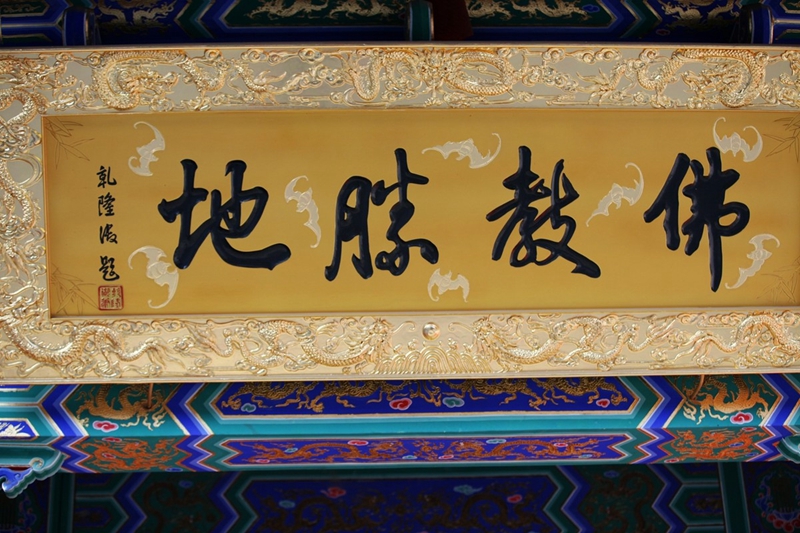 佛教勝地
乾隆御題